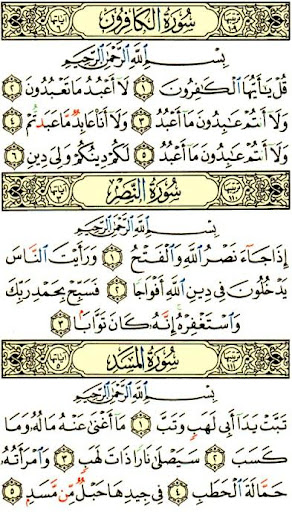 سُورَةُ الكَافِرُون
بِسْمِ اللَّهِ الرَّحْمَٰنِ الرَّحِيمِ
قُلْ يَٰٓأَيُّهَا ٱلْكَٰفِرُونَ ۝١ لَآ أَعْبُدُ مَا تَعْبُدُونَ ۝٢
وَلَآ أَنتُمْ عَٰبِدُونَ مَآ أَعْبُدُ ۝٣ وَلَآ أَنَا۠ عَابِدٌ مَّا عَبَدتُّمْ ۝٤
وَلَآ أَنتُمْ عَٰبِدُونَ مَآ أَعْبُدُ ۝٥ لَكُمْ دِينُكُمْ وَلِىَ دِينِ ۝٦
سُورَةُ النَّصْر
بِسْمِ اللَّهِ الرَّحْمَٰنِ الرَّحِيمِ
إِذَا جَآءَ نَصْرُ ٱللَّهِ وَٱلْفَتْحُ ۝١ وَرَأَيْتَ ٱلنَّاسَ
يَدْخُلُونَ فِى دِينِ ٱللَّهِ أَفْوَاجًا ۝٢ فَسَبِّحْ بِحَمْدِ رَبِّكَ
وَٱسْتَغْفِرْهُ إِنَّهُۥ كَانَ تَوَّابًۢا ۝٣
سُورَةُ المَسَد
بِسْمِ اللَّهِ الرَّحْمَٰنِ الرَّحِيمِ
تَبَّتْ يَدَآ أَبِى لَهَبٍ وَتَبَّ ۝١ مَآ أَغْنَىٰ عَنْهُ مَالُهُۥ وَمَا
كَسَبَ ۝٢ سَيَصْلَىٰ نَارًا ذَاتَ لَهَبٍ ۝٣ وَٱمْرَأَتُهُۥ
حَمَّالَةَ ٱلْحَطَبِ ۝٤ فِى جِيدِهَا حَبْلٌ مِّن مَّسَدٍۭ ۝٥